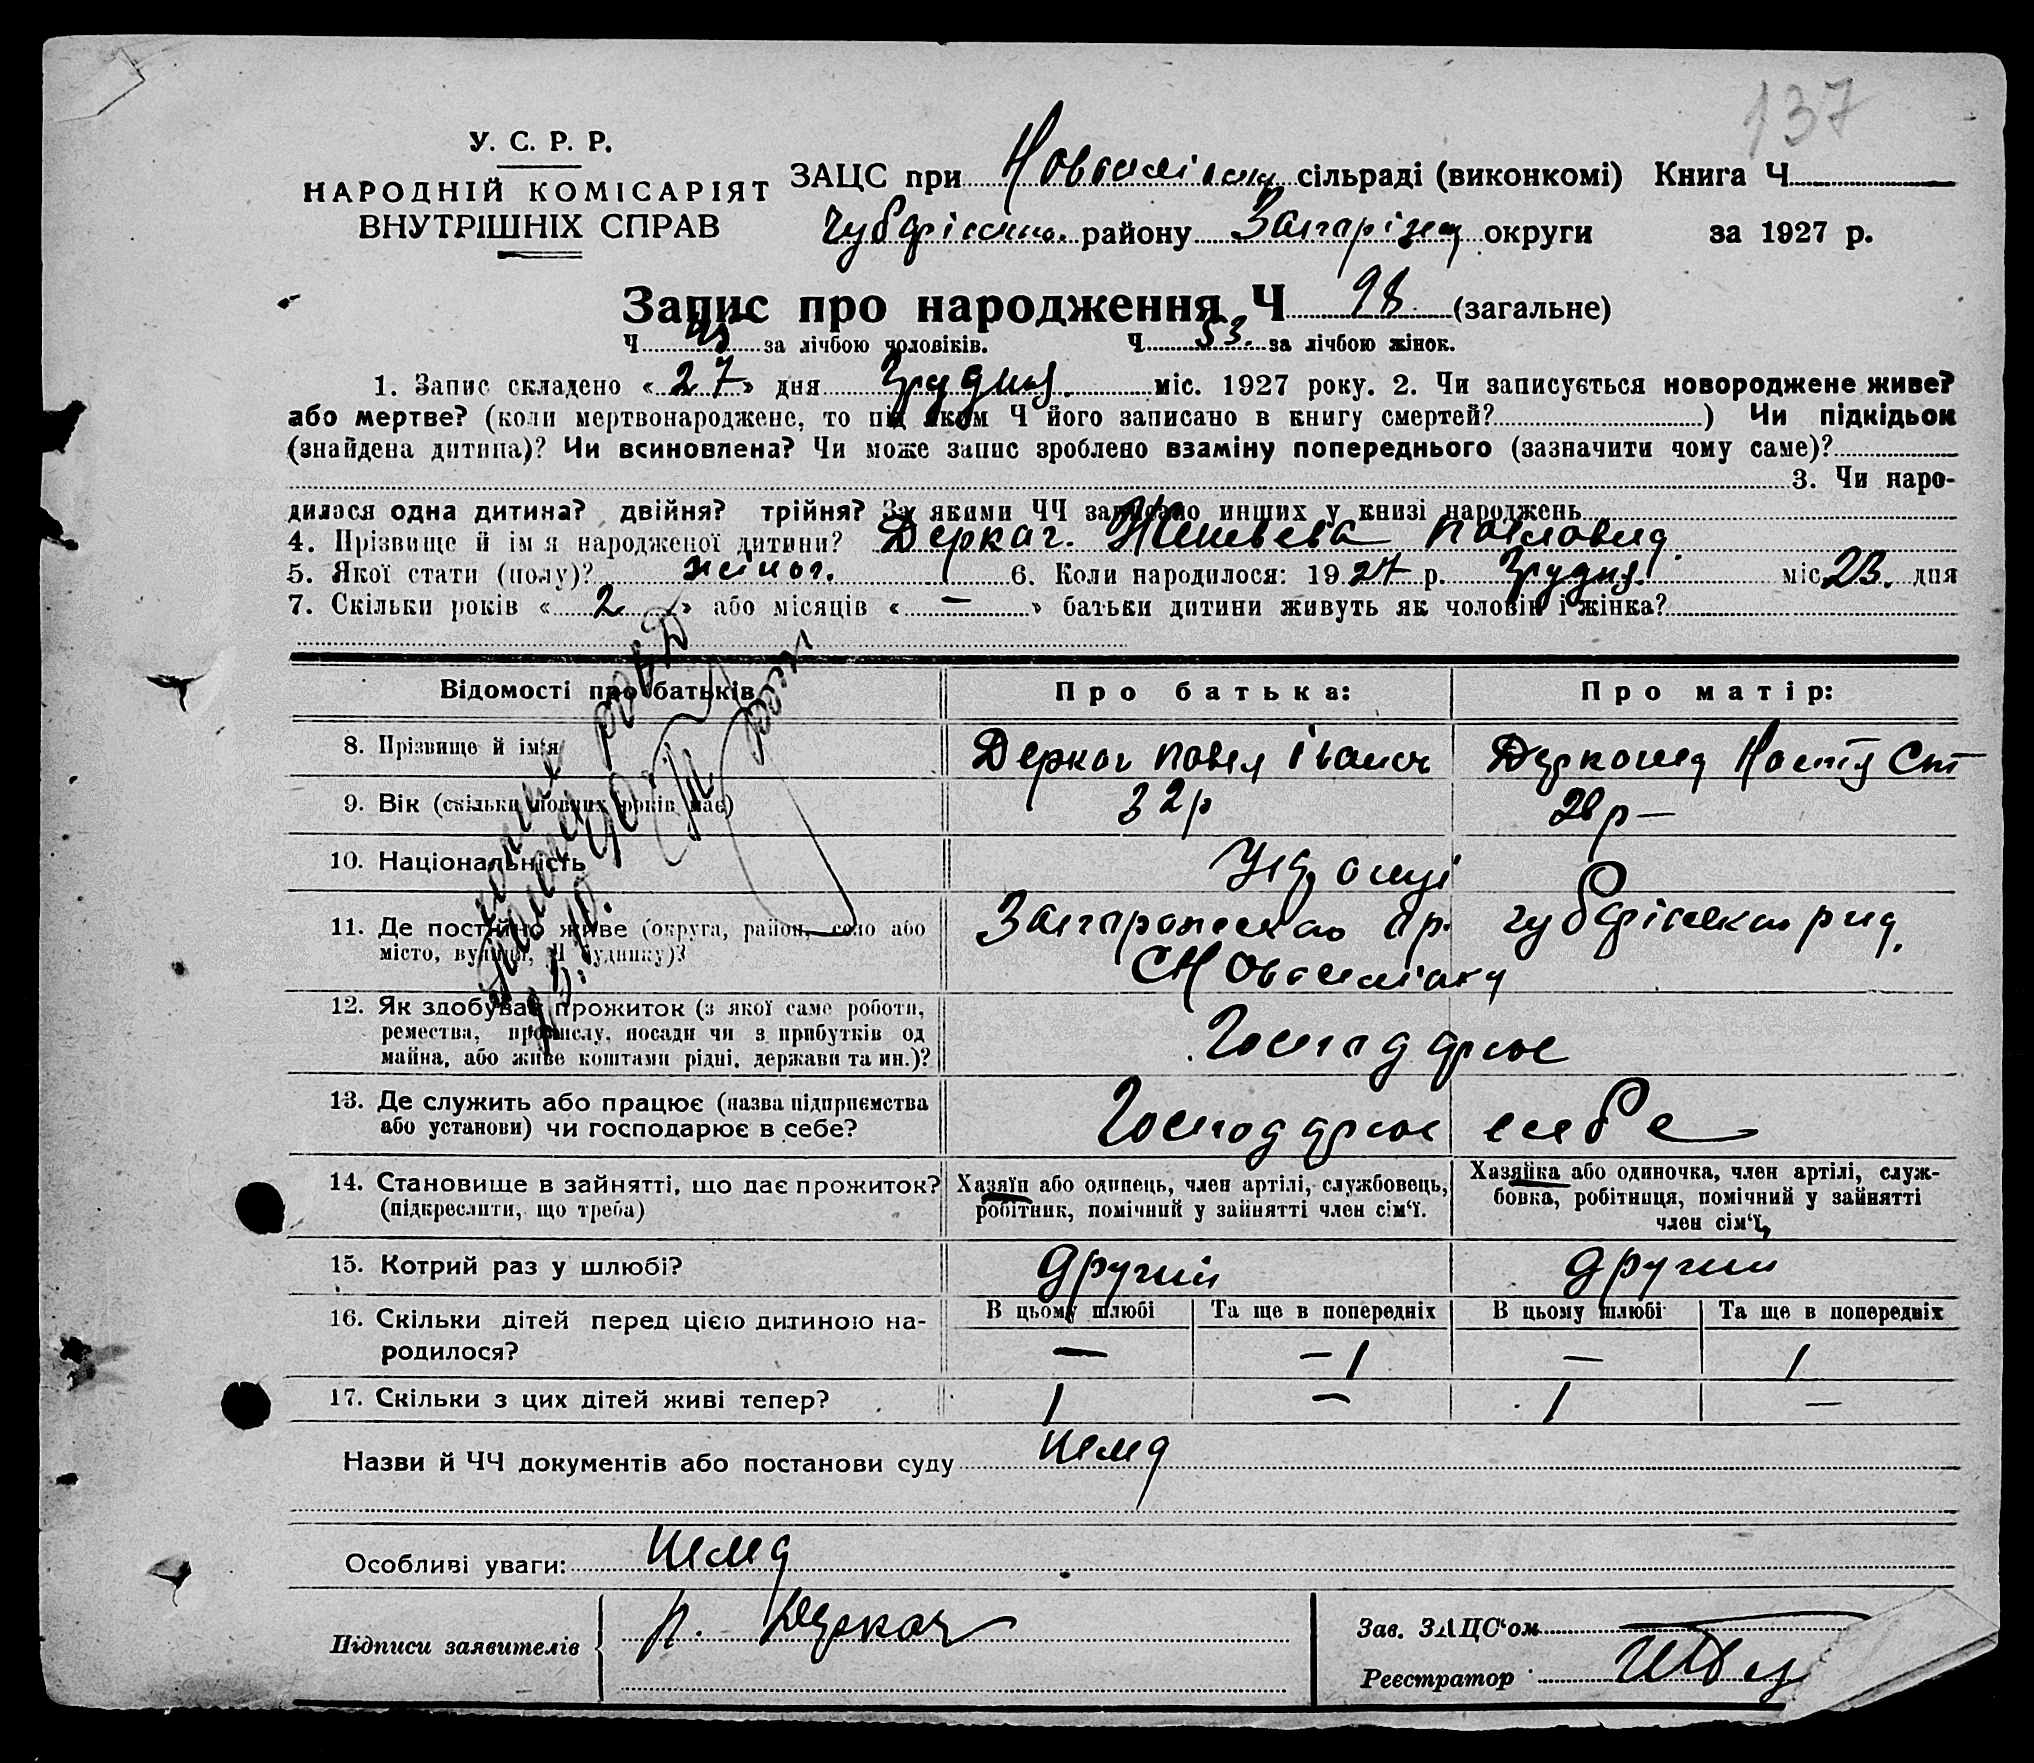 137
У. С. Р. Р.
НАРОДНІЙ КОМІСАРІЯТ
ВНУТРІШНІХ СПРАВ
ЗАЦС при сільраді (виконкомі) Книга Ч
району округи за 1927 р.
Запис про народження Ч 98 (загальне)
Ч 45 за лічбою чоловіків. Ч 53. за лічбою жінок.
1. Запис складено « 27 » дня Грудня. міс. 1927 року. 2. Чи записується новороджене живе?
або мертве? (коли мертвонароджене, то під яким Ч його записано в книгу смертей? ) Чи підкідьок
(знайдена дитина)? Чи всиновлена? Чи може запис зроблено взаміну попереднього (зазначити чому саме)?
3. Чи наро-
дилася одна дитина? двійня? трійня? За якими ЧЧ записано инших у книзі народжень
4. Прізвище й ім я народженої дитини? Деркач. Павловна
5. Якої стати (полу)? жіноч. 6. Коли народилося: 19 27 р. Грудня. міс. 23. дня
7. Скільки років « 2 » або місяців « — » батьки дитини живуть як чоловік і жінка?
Відомості про батьків
Про батька:
Про матір:
8. Прізвище й ім'я
Деркач Павел Іванов
Настя Ст
9. Вік (скільки повних років має)
32 р
28 р —
10. Національність
11. Де постійно живе (округа, район, село або
місто, вулиця, Ч будинку)?
12. Як здобуває прожиток (з якої саме роботи,
ремества, промислу, посади чи з прибутків од
майна, або живе коштами рідні, держави та ин.)?
13. Де служить або працює (назва підприємства
або установи) чи господарює в себе?
себе
14. Становище в зайнятті, що дає прожиток?
(підкреслити, що треба)
Хазяїн або одинець, член артілі, службовець,
робітник, помічний у зайнятті член сім'ї.
Хазяйка або одиночка, член артілі, служ-
бовка, робітниця, помічний у зайнятті
член сім'ї,
15. Котрий раз у шлюбі?
другий
другий
16. Скільки дітей перед цією дитиною на-
родилося?
В цьому шлюбі Та ще в попередніх В цьому шлюбі Та ще в попередніх
— — 1 — 1
17. Скільки з цих дітей живі тепер?
1 — 1 —
Назви й ЧЧ документів або постанови суду нема
Особливі уваги: нема
Підписи заявителів П. Деркач
Зав. ЗАЦС'ом
Реєстратор